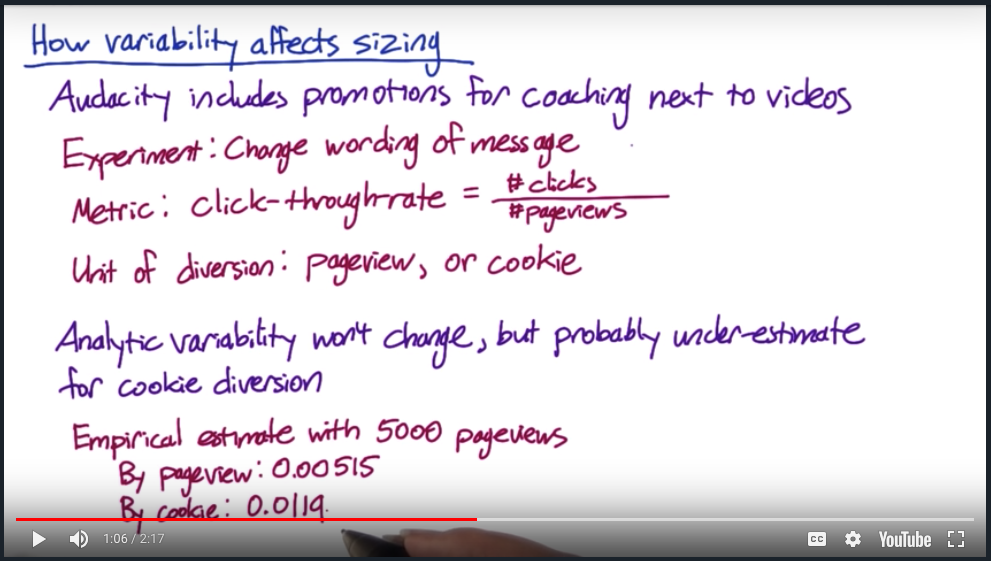 How variability affects sizing
Audacity includes promotions for coaching next to videos
Experiment: Change wording of message
Metric: click-through-rate = #clicks
#pageviews
Unit of diversion: pageview, or cookie
Analytic variability won't change, but probably under-estimate
for cookie diversion
Empirical estimate with 5000 pageviews
By pageview: 0.00515
By cookie: 0.0119
1:06 / 2:17
CC
YouTube